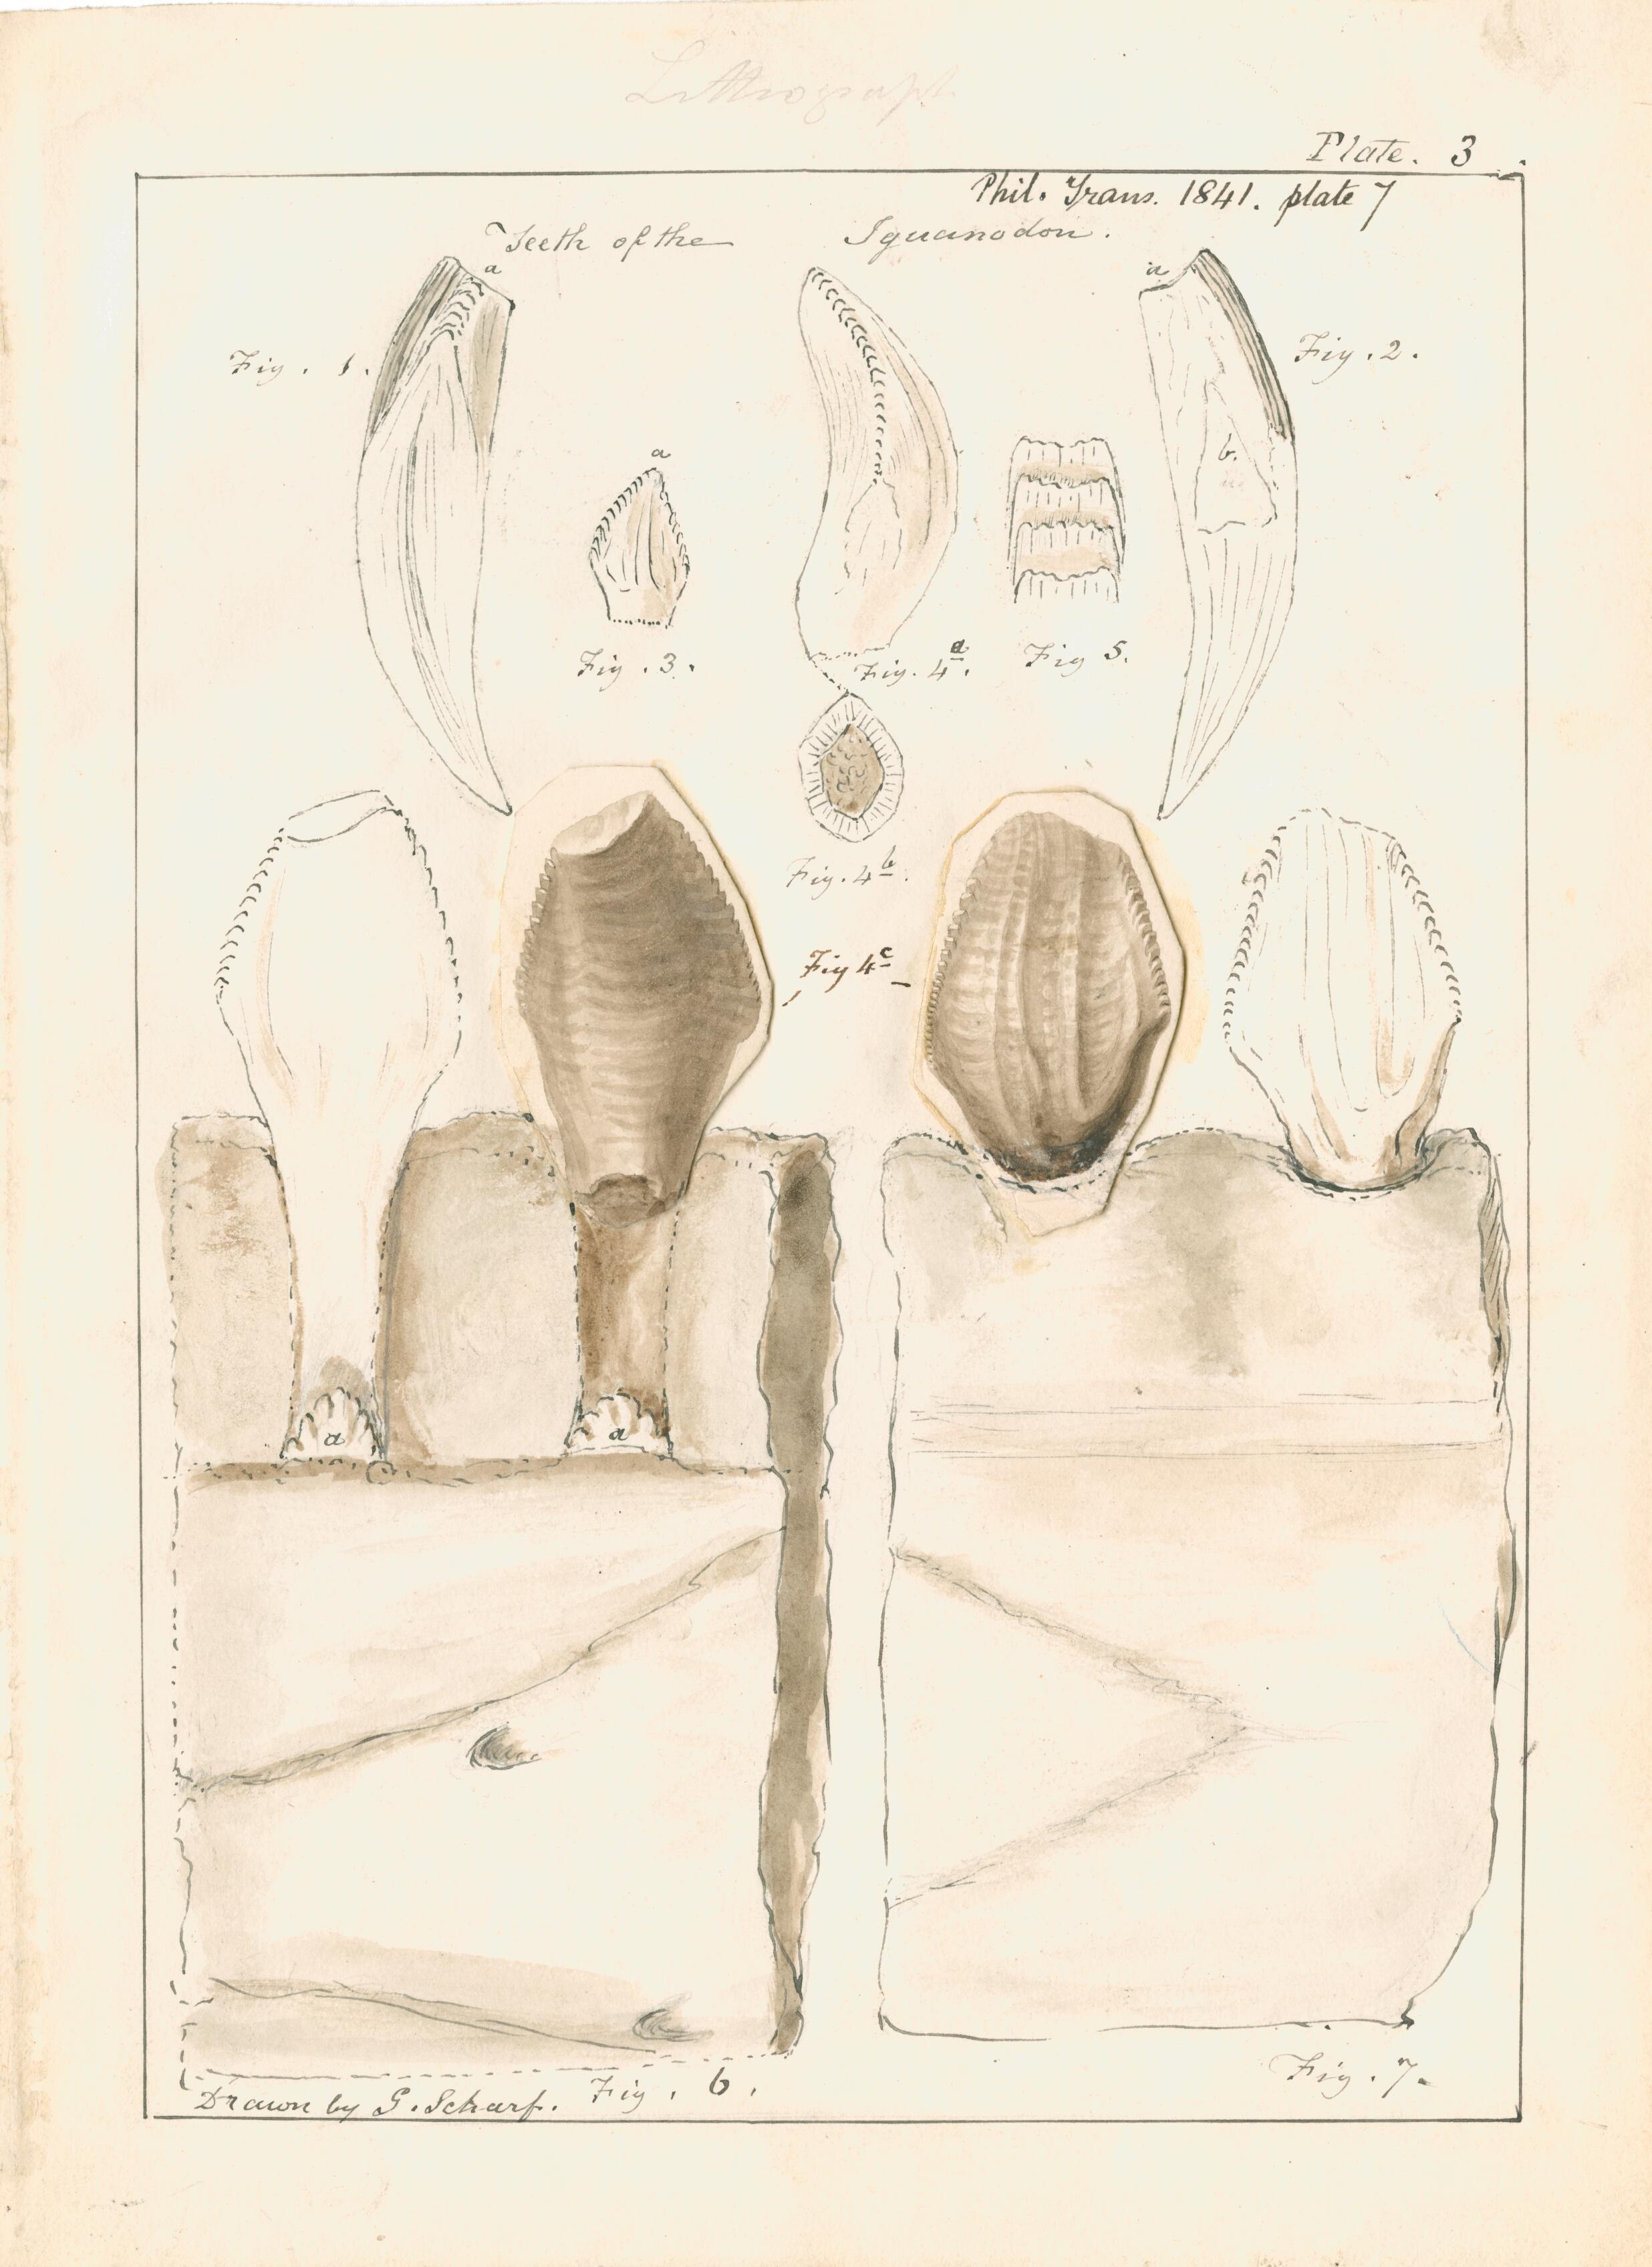 Lithograph
Plate. 3
Phil. Trans. 1841. plate 7
Teeth of the Iguanodon.
a
a
Fig. 1.
Fig. 2.
b.
a
Fig. 3.
Fig. 4a.
Fig 5.
Fig. 4b.
Fig 4c
a
a
Drawn by G. Scharf.
Fig. 6.
Fig. 7.